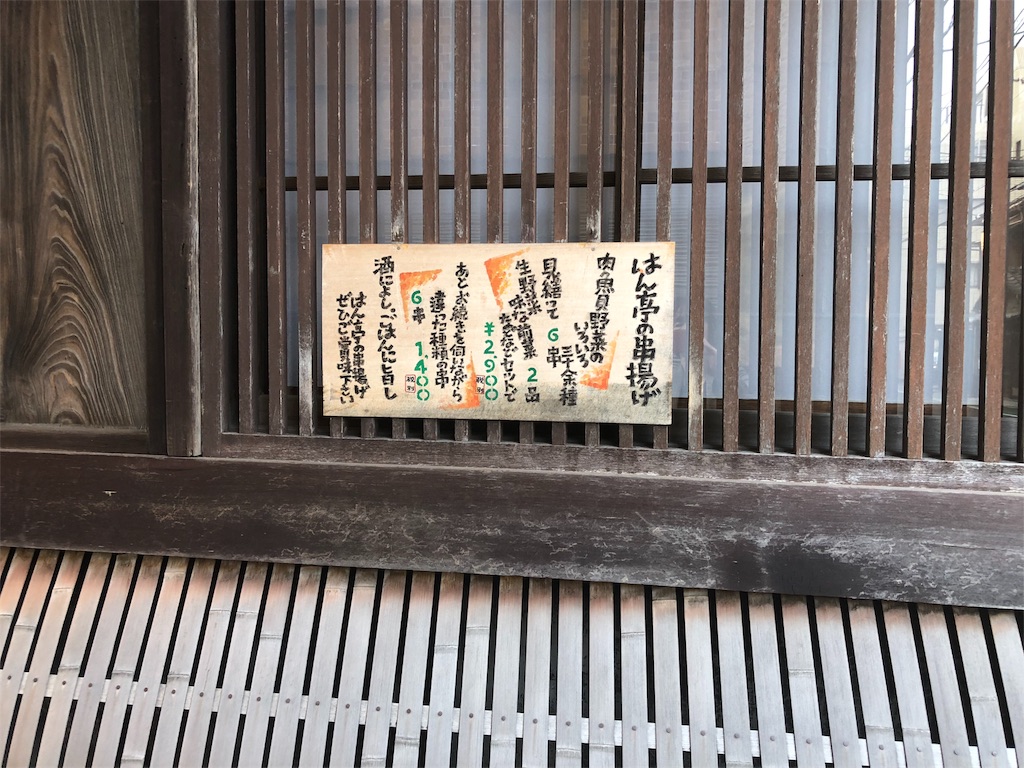 はん亭の串揚げ
肉の魚貝野菜の
いろいろ
三十余種
見繕って 6串
生野菜
味な前菜2品
などなどセットで
¥2,900
税別
あとお続きを伺いながら
違った種類の串
6串 1,400
税別
酒によし、ごはんに旨し
はん亭の串揚げ
ぜひご賞味下さい